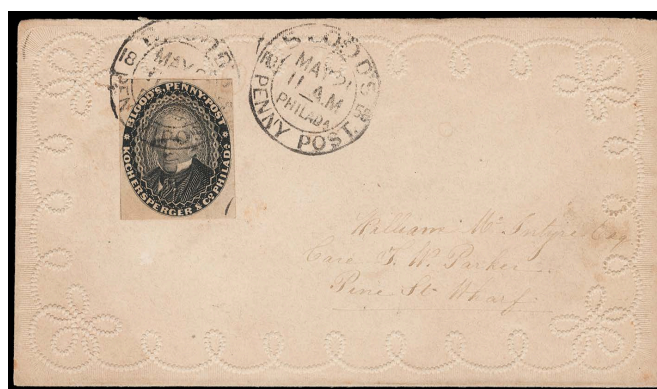 BLOOD'S
PENNY POST.
MAY 21
11 A.M
PHILADA
BLOOD'S PENNY POST
KOCHERSPERGER & CO. PHILADA.
William Mc Intyre Esq
Care T. W. Parker
Pine St Wharf